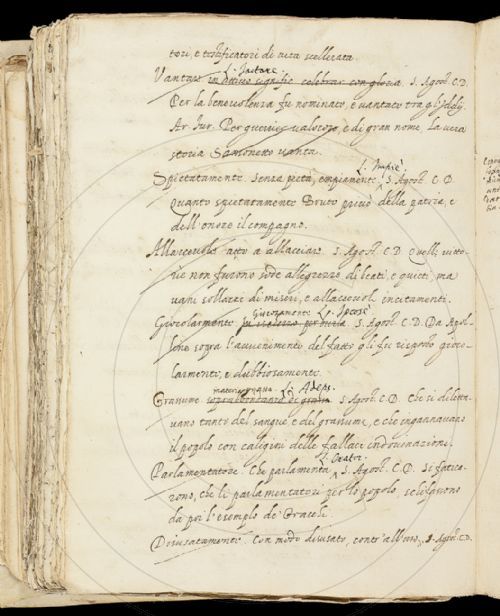 tori, e testificatori di vita scellerata.
L. Jactare.
Vantare in attivo signific. celebrar con gloria. S. Agost. C.D.
Per la benevolenza fu nominato, e vantato tra gl'Idolj.
Ar. Fur. Per guerrier valoroso, e di gran nome, La vera
storia Sansonetto vanta.
L. Impiè
Spietatamente. Senza pietà, empiamente. S. Agost. C.D.
quanto spietatamente Bruto privò della patria, e
dell'onore il compagno.
Allaccevole atto a allacciare. S. Agost. C.D. e quelle vitto-
rie non furono sode allegrezze di beati, e quieti, ma
vani sollazzi di miseri, e allaccevoli incitamenti.
Giocosamente L. Jocosè
Giocolarmente S. Agost. C.D. Da Apol-
line sopra l'avvenimento del fatto gli fu risposto gioco-
larmente, e dubbiosamente.
materia grassa. L. Adeps.
Grassume soprabbondanza di grasso. S. Agost. C.D. che si diletta-
vano tanto del sangue, e del grassume, e che ingannavano
il popolo con caligini delle fallaci indovinazioni.
Parlamentatore. Che parlamenta S. Agost. C.D. Si fecie-
rono, che li parlamentatori per lo popolo, seguissono
da poi l'esemplo de' Gracchi.
Disusatamente. Con modo disusato, contr'all'uso. S. Agost. C.D.